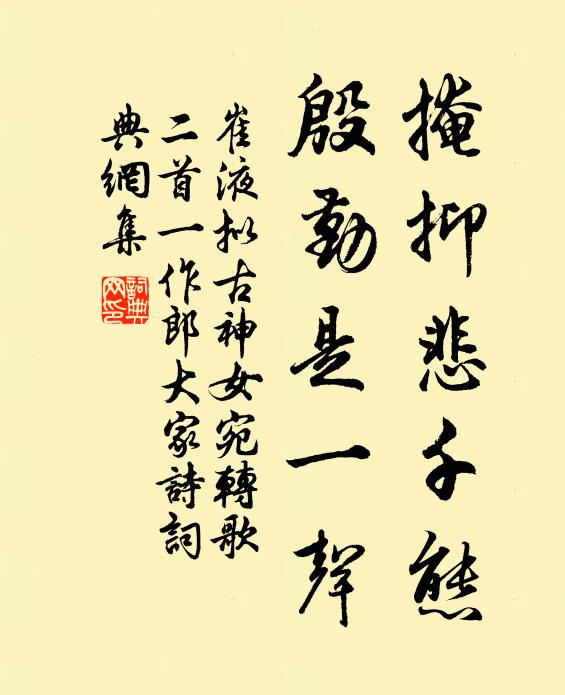 掩抑悲千態
殷勤是一聲
崔液擬古神女宛轉歌
二首一作郎大家詩詞
典網集
詞典網印